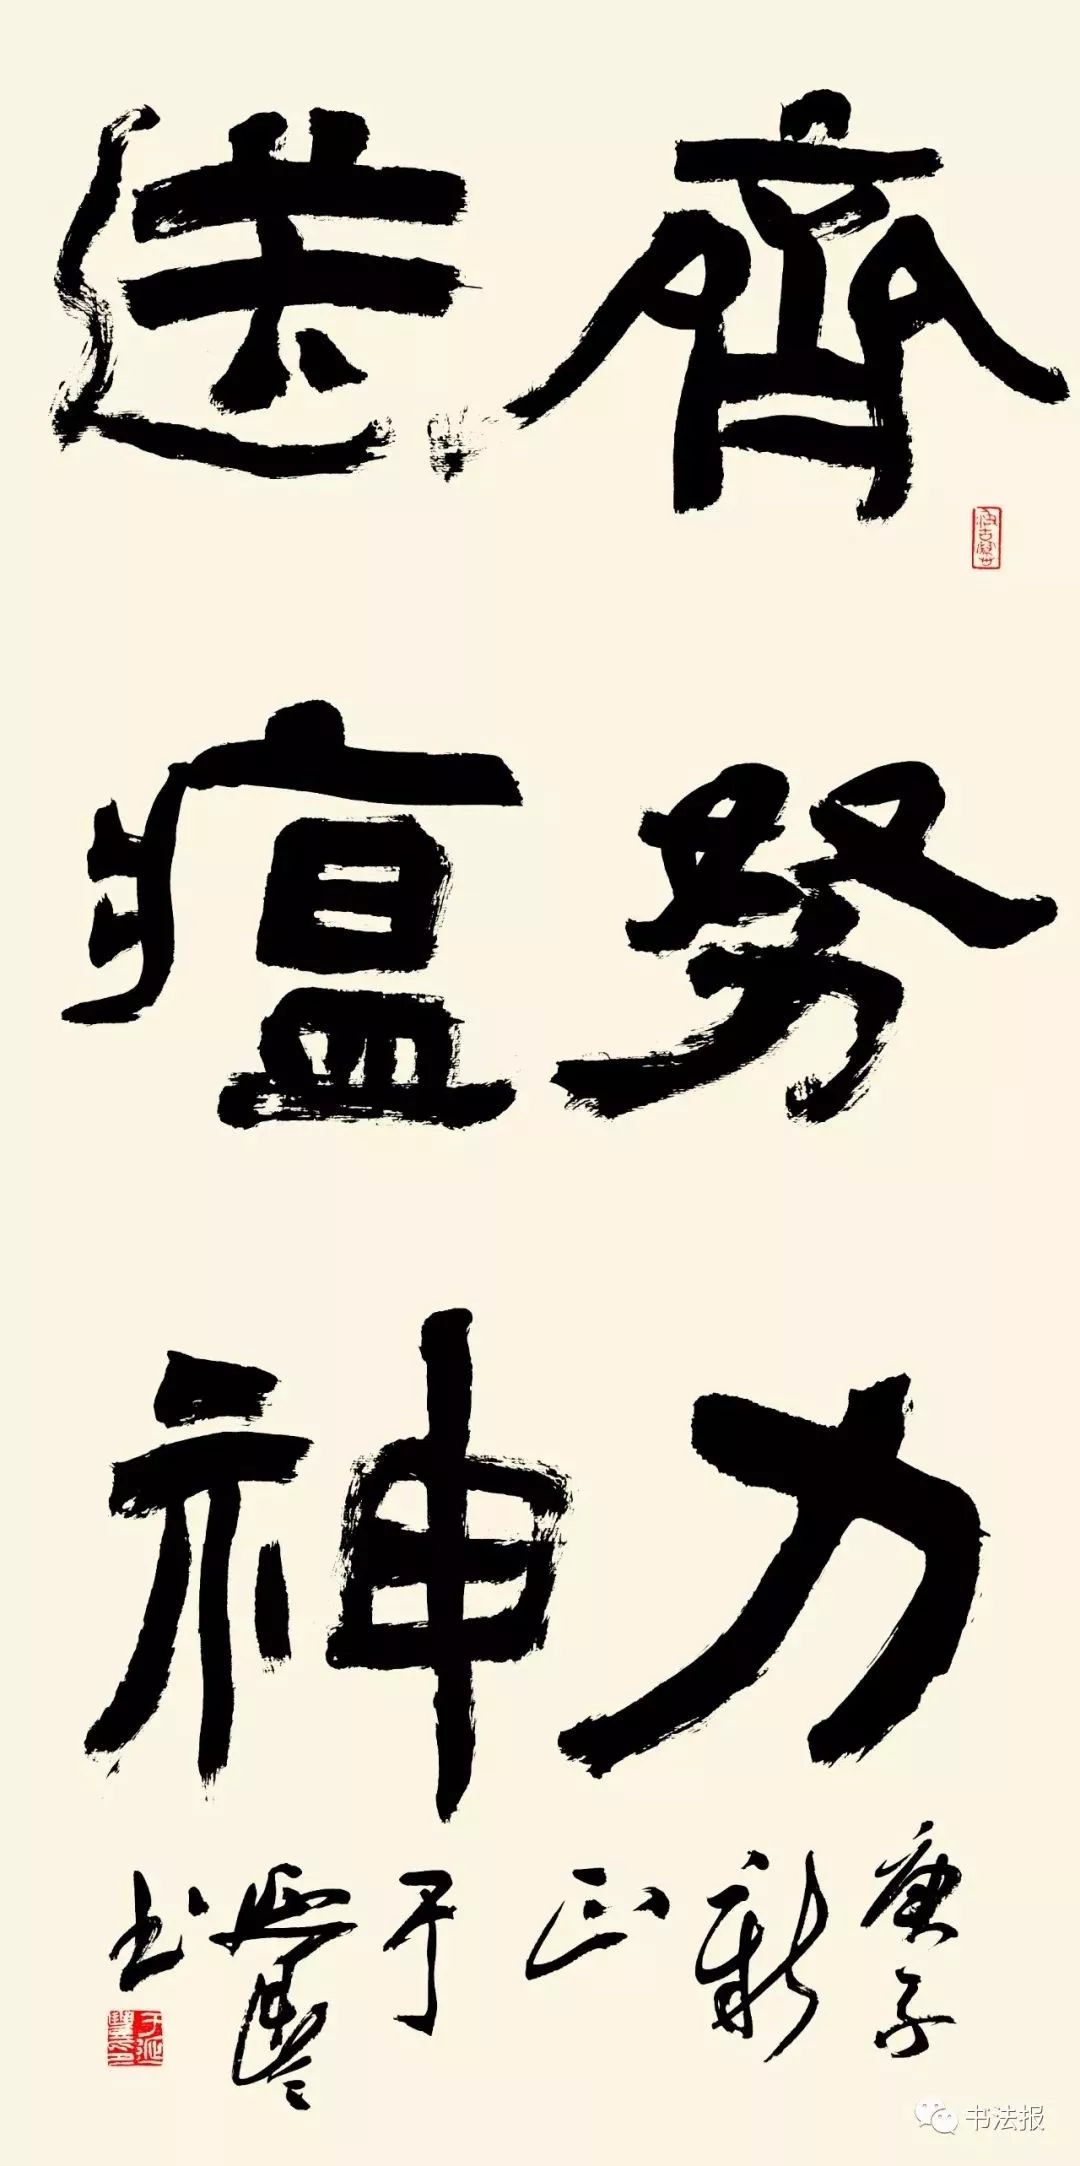 齊努力
送瘟神
庚子
新
正
于
延豐
书
书法报